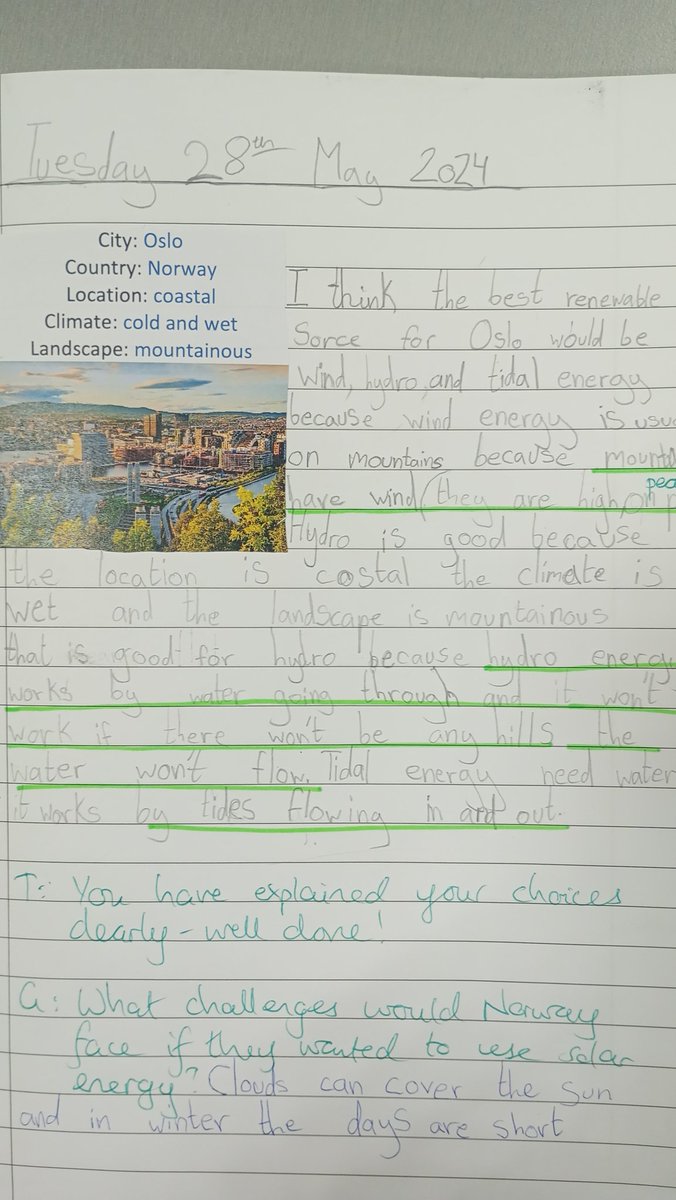 Tuesday 28th May 2024
City: Oslo
Country: Norway
Location: coastal
Climate: cold and wet
Landscape: mountainous
I think the best renewable
Sorce for Oslo would be
Wind, hydro, and tidal energy
because wind energy is
on mountains because
have wind (they are high on
Hydro is good because
the location is costal the climate is
wet and the landscape is mountainous
that is good for hydro because hydro energy
works by water going through and it won't
work if there won't be any hills the
water won't flow. Tidal energy need water
it works by tides flowing in and out.
T: You have explained your choices
clearly - well done!
Q: What challenges would Norway
face if they wanted to use solar
energy? Clouds can cover the sun
and in winter the days are short